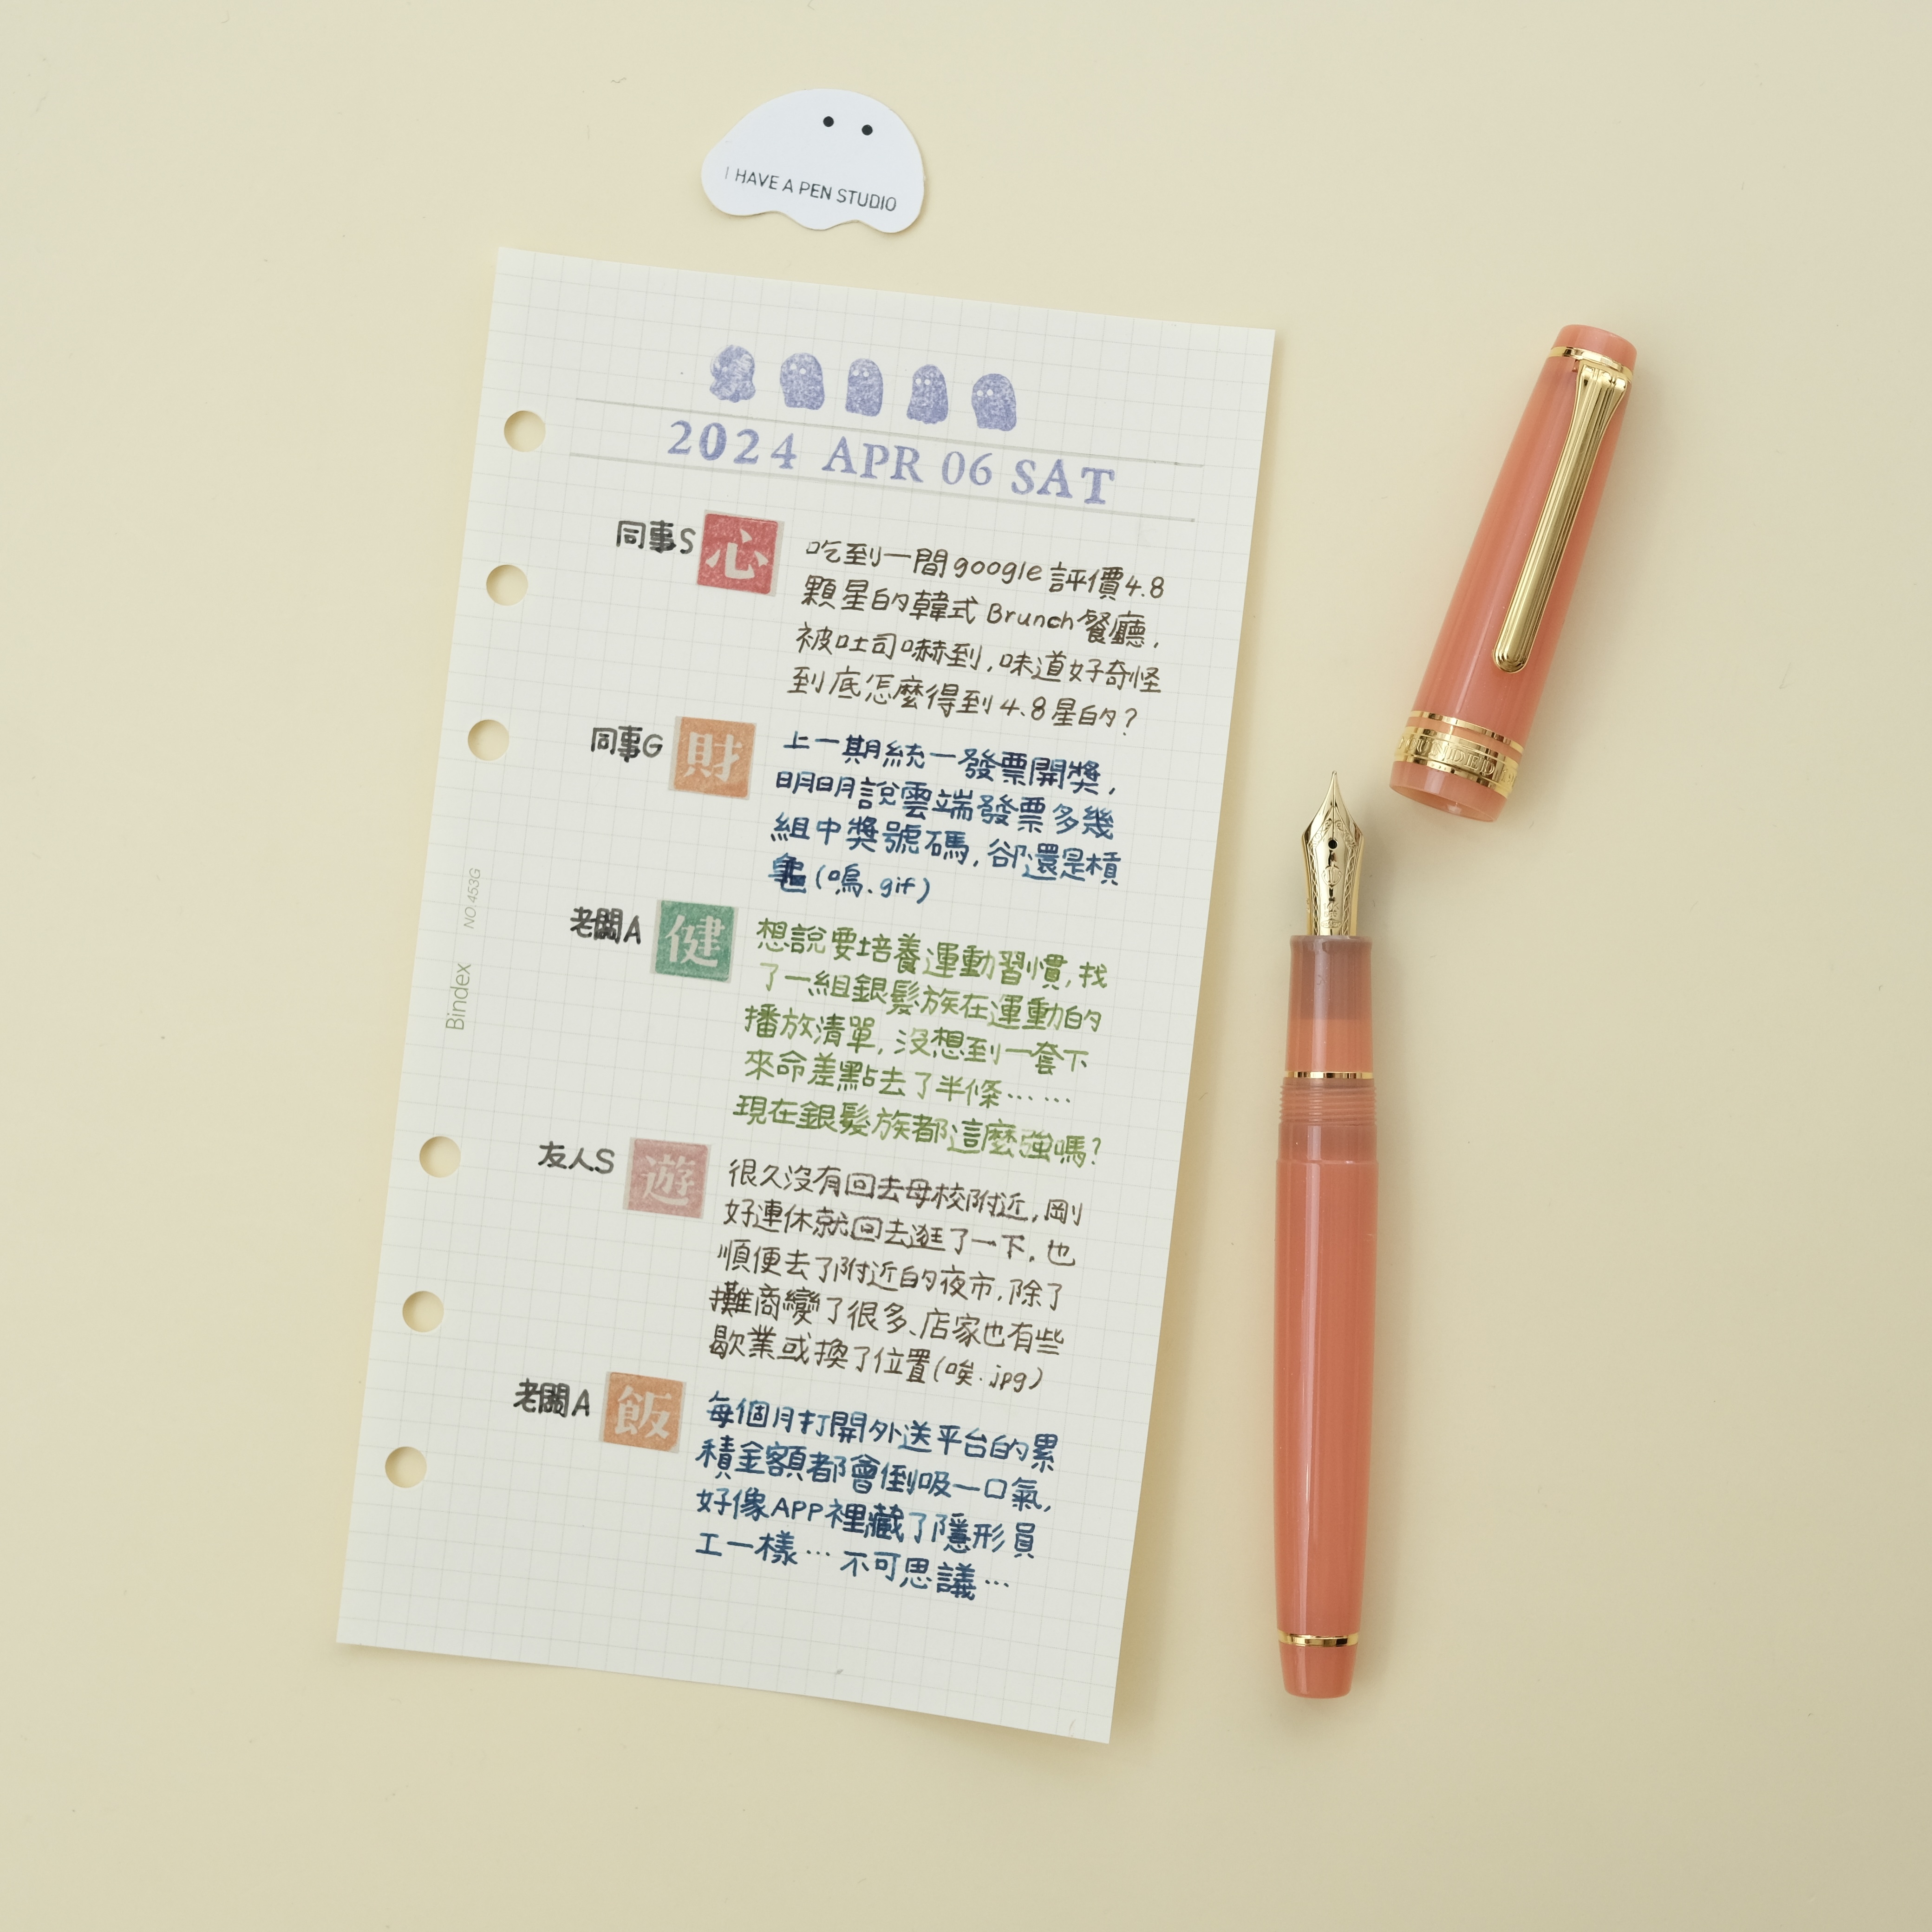 I HAVE A PEN STUDIO
2024 APR 06 SAT
同事S
心
吃到一間google評價4.8
顆星的韓式Brunch餐廳,
被吐司嚇到,味道好奇怪
到底怎麼得到4.8星的?
同事G
財
上一期統一發票開獎,
明明說雲端發票多幾
組中獎號碼,卻還是槓
龜(嗚.gif)
老闆A
健
想說要培養運動習慣,找
了一組銀髮族在運動的
播放清單,沒想到一套下
來命差點去了半條……
現在銀髮族都這麼強嗎?
友人S
遊
很久沒有回去母校附近,剛
好連休就回去逛了一下,也
順便去了附近的夜市,除了
攤商變了很多、店家也有些
歇業或換了位置(唉.jpg)
老闆A
飯
每個月打開外送平台的累
積金額都會倒吸一口氣,
好像APP裡藏了隱形員
工一樣…不可思議…
Bindex NO.453G
UNDED